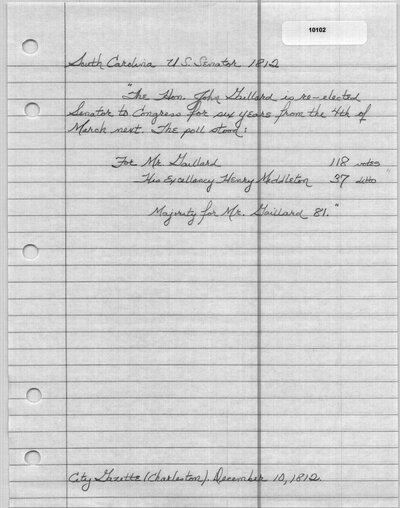 10102
South Carolina U.S. Senator 1812
"The Hon. John Gaillard is re-elected
Senator to Congress for six years from the 4th of
March next. The poll stood:
For Mr. Gaillard 118 votes
His Excellency Henry Middleton 37 ditto "
Majority for Mr. Gaillard 81."
City Gazette (Charleston). December 10, 1812.